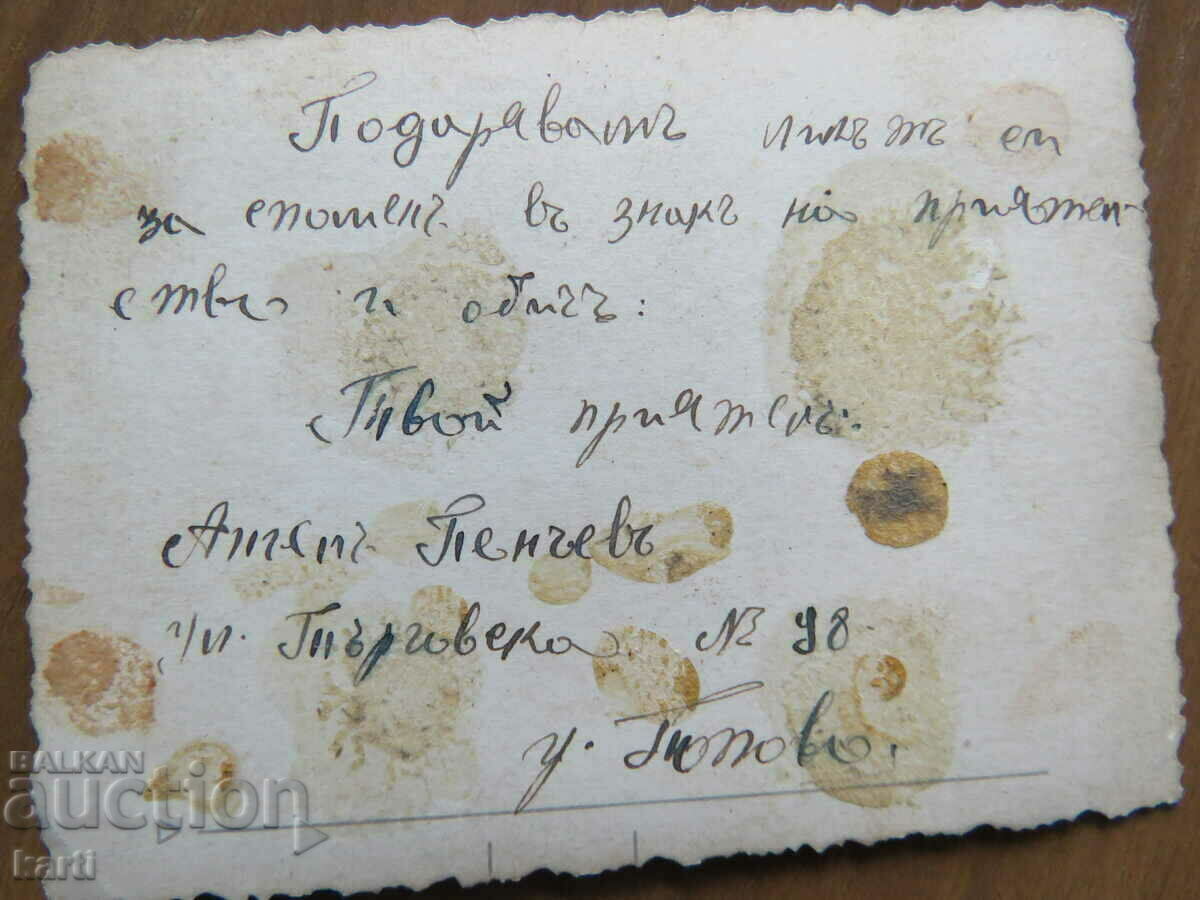 Подарявамъ ликътъ си
за споменъ въ знакъ на приятел
ство и обичъ:
Твой приятелъ:
Ангелъ Пенчевъ
ул. Търговска № 98
Попово.
BALKAN
auction
karti